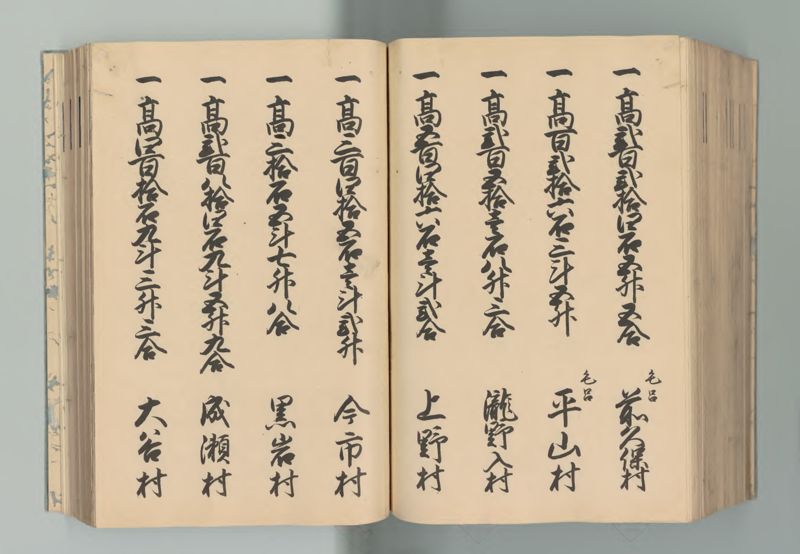 一 高弐百弐拾四石五升五合 毛呂 前久保村
一 高百弐拾六石三斗五升 毛呂 平山村
一 高弐百五拾壱石八升三合 瀧野入村
一 高五百四拾六石壱斗弐合 上野村
一 高三百四拾五石壱斗弐升 今市村
一 高三拾石五斗七升八合 黒岩村
一 高弐百八拾四石九斗五升九合 成瀬村
一 高四百拾石九斗三升三合 大谷村